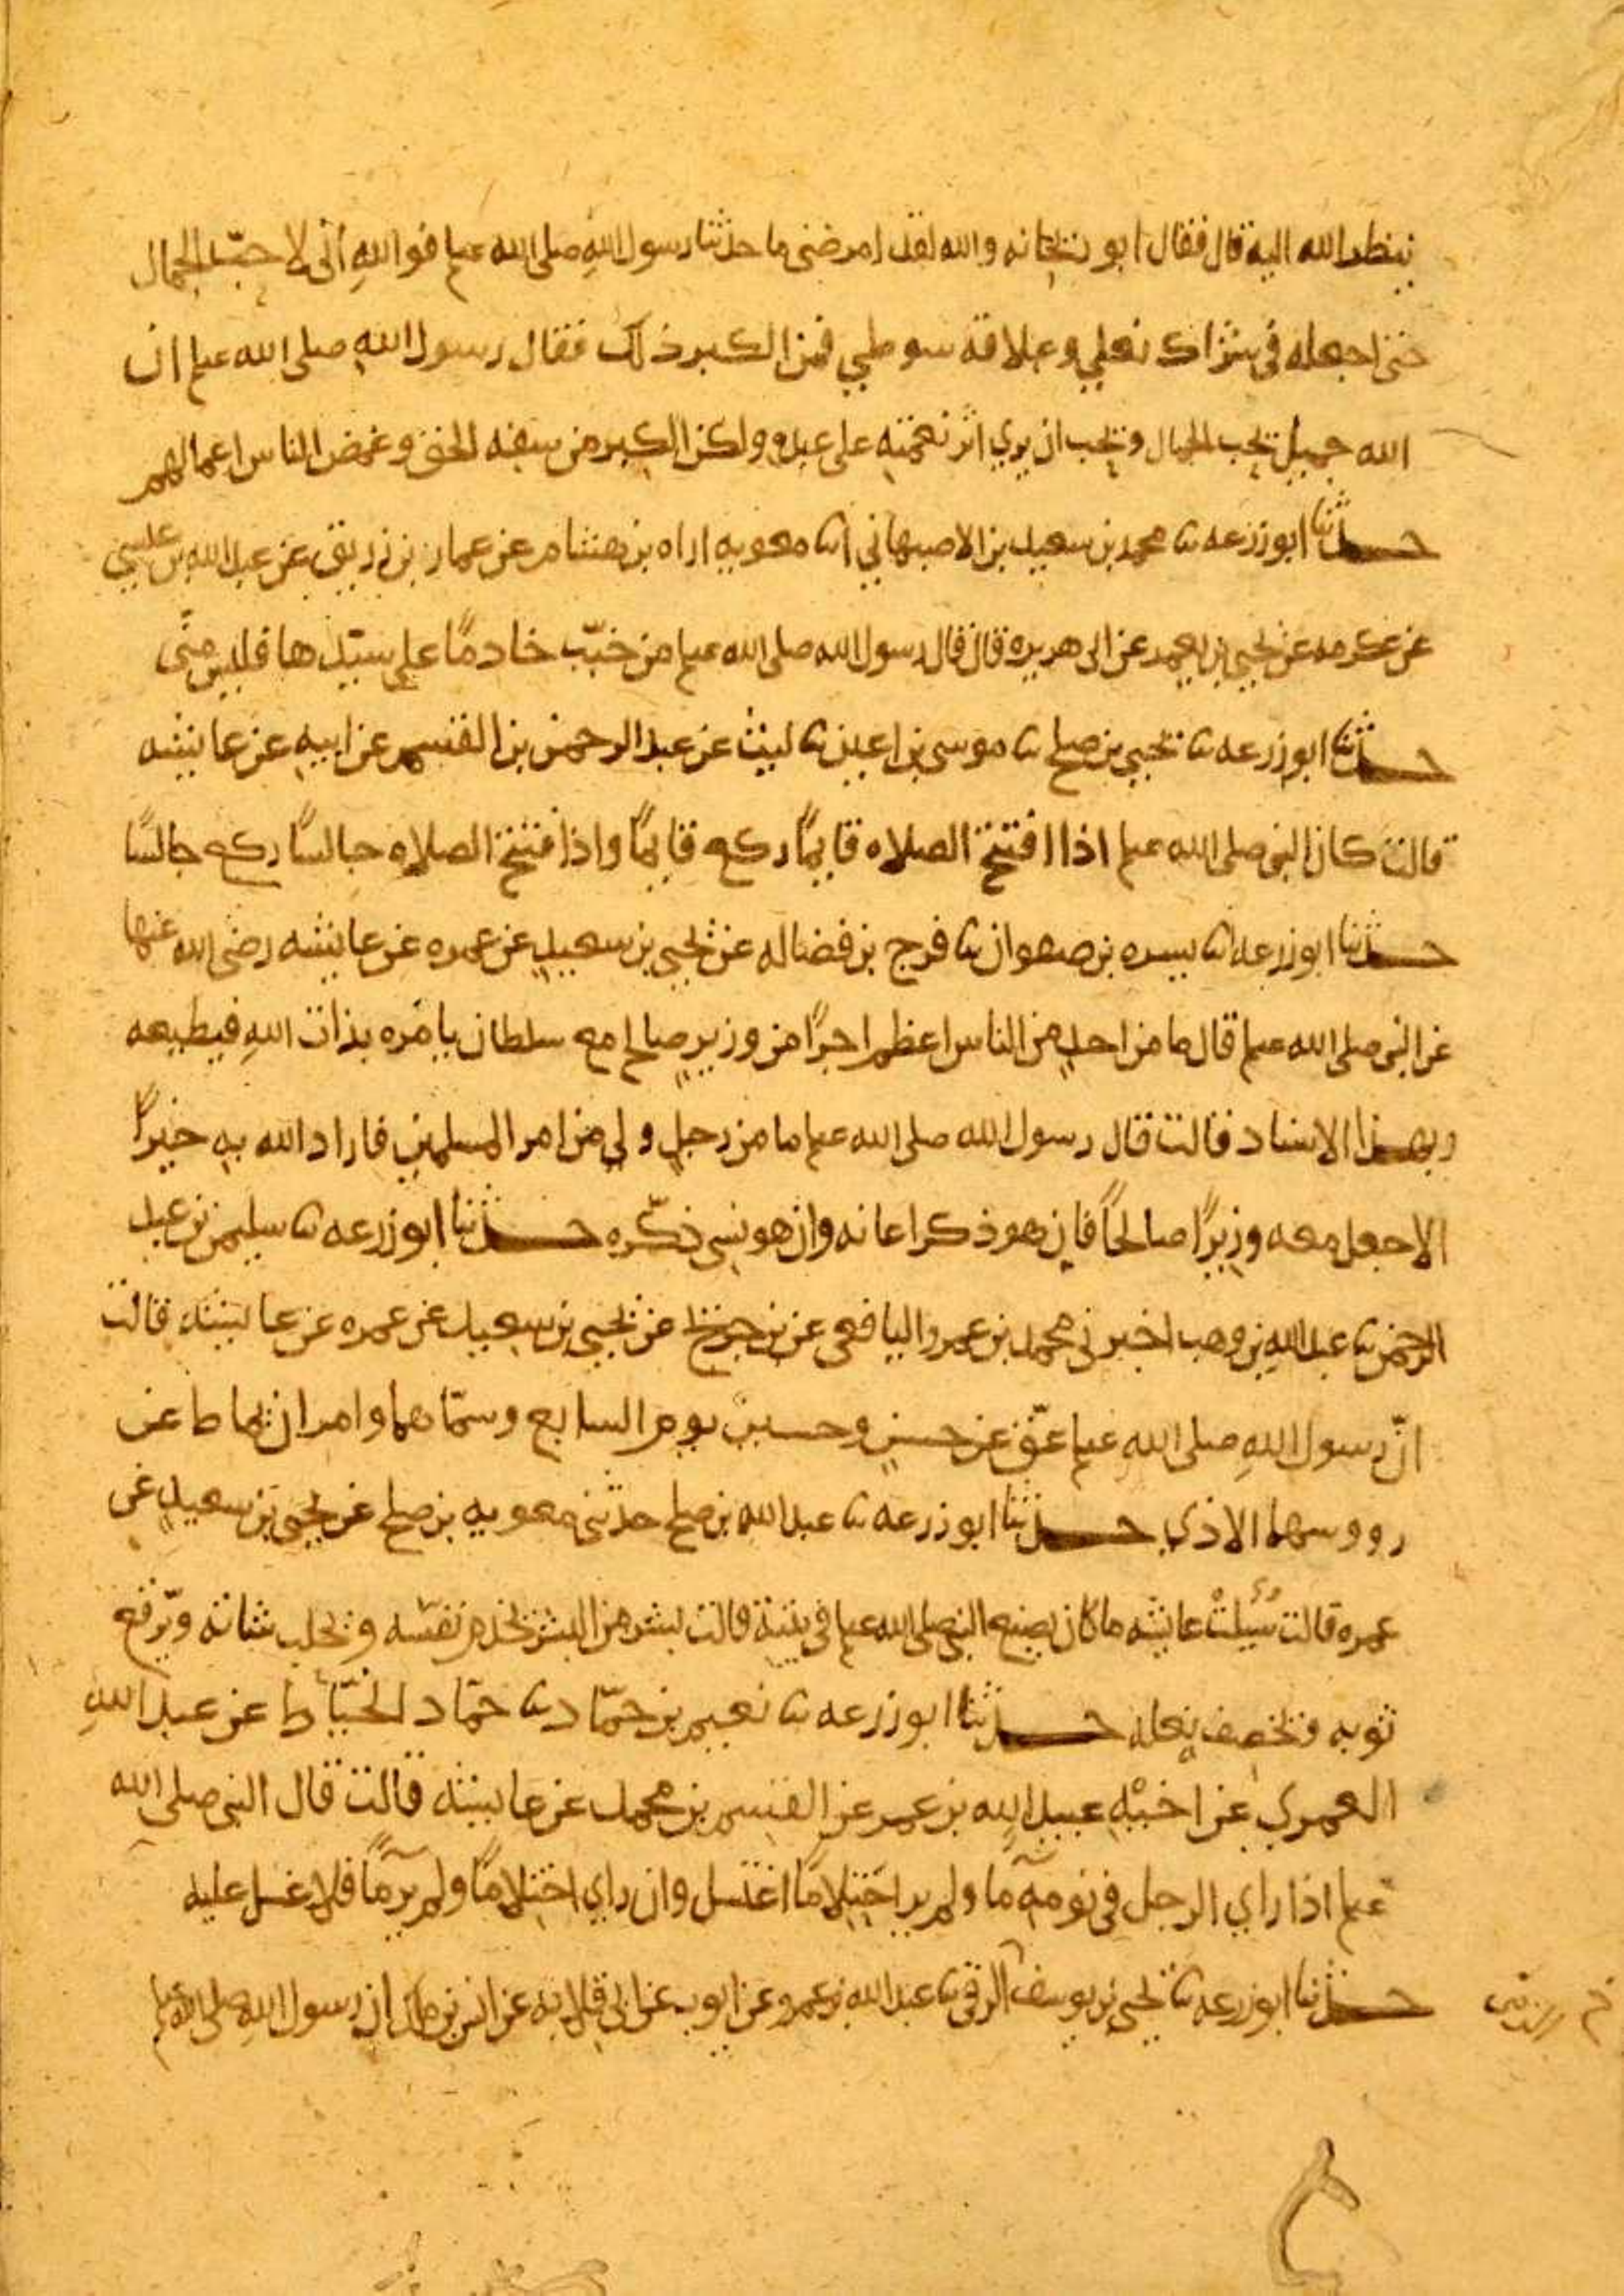 ينظر الله اليه قال فقال ابو ريحانه والله لقد امرضني ما حدثنا رسول اللهِ صلى الله علىم فواللهِ انّى لاحبّ الجمال
حتى اجعله في شراك نعلي وعلاقه سوطي فمن الكبر ذلك فقال رسول اللهِ صلى الله علىم ان
الله جميل يحب الجمال ويحب ان يري اثر نعمته على عبده ولكن الكبر من سفه الحق وغمض الناس اعمالهم
حدثنا ابو زرعه ثنا محمد بن سعيد بن الاصبهاني انا معويه اراه بن هشام عن عمار بن زريق عن عبد الله بن عيسي
عن عكرمه عن يحيي بن يعمر عن ابى هريره قال قال رسول الله صلى الله علىم من خبّب خادمًا على سيّدها فليس منّى
حدثنا ابو زرعه ثنا يحيي بن صلح ثنا موسى بن اعين ثنا ليث عن عبد الرحمن بن القسم عن ابيهِ عن عايشه
قالت كان النبي صلى الله علىم اذا افتتح الصلاه قايمًا ركع قايمًا واذا فتتح الصلاه جالسًا ركع جالسًا
حدثنا ابو زرعه ثنا يسره بن صفوان ثنا فرج بن فضاله عن يحيي بن سعيدٍ عن عمره عن عايشه رضى الله عنها
عن النبي صلى الله علىم قال ما من احدٍ من الناس اعظم اجرًا من وزيرٍ صالحٍ مع سلطان يامره بذات اللهِ فيطيعه
وبهذا الاسناد قالت قال رسول الله صلى الله علىم ما من رجلٍ ولي من امر المسلمين فاراد الله بهِ خيرًا
الا جعل معه وزيرًا صالحًا فان هو ذكر اعانه وان هو نسي ذكّره حدثنا ابو زرعه ثنا سليمن بن عبد
الرحمن ثنا عبد اللهِ بن وهب اخبرني محمد بن عمرو اليافعى عن بن جريج عن يحيي بن سعيد عن عمره عن عايشه قالت
انّ رسول اللهِ صلى الله علىم عقّ عن حسنٍ وحسين يوم السابع وسمّاهما وامر ان يماط عن
رووسهما الاذي حدثنا ابو زرعه ثنا عبد الله بن صلح حدثني معويه بن صلح عن يحيي بن سعيدٍ عن
عمره قالت سُئِلتْ عايشه ما كان يصنع النبي صلى الله علىم في بيته قالت بشر من البشر يخدم نفسه ويحلب شاته ويرقع
ثوبه ويخصف نعله حدثنا ابو زرعه ثنا نعيم بن حمّاد ثنا حمّاد الخيّاط عن عبد اللهِ
العمري عن اخيْهِ عبيد اللهِ بن عمر عن القسم بن محمد عن عايشه قالت قال النبي صلى الله
علىم اذا راي الرجل في نومهِ ما ولم ير احتلامًا اغتسل وان راي احتلامًا ولم ير مًا فلا غسل عليه
حدثنا ابو زرعه ثنا يحيي بن يوسف الرقي ثنا عبد الله بن عمرو عن ايوب عن ابى قلابه عن انس بن مالك ان رسول اللهِ صلى الله علىم